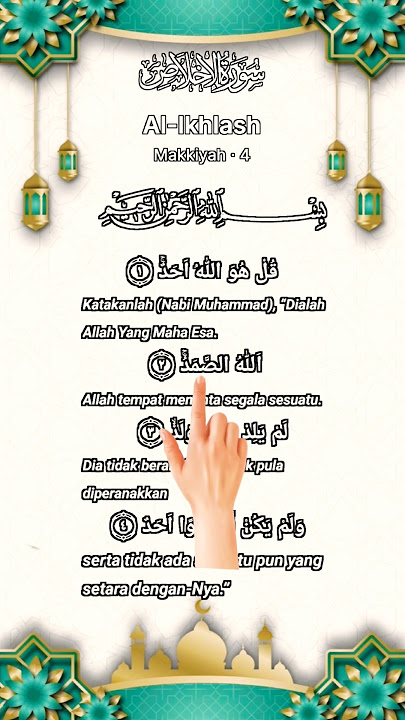 سُورَةُ الإِخْلَاصِ
Al-Ikhlash
Makkiyah · 4
بِسْمِ اللّٰهِ الرَّحْمٰنِ الرَّحِيْمِ
قُلْ هُوَ اللّٰهُ اَحَدٌۚ ١
Katakanlah (Nabi Muhammad), “Dialah
Allah Yang Maha Esa.
اَللّٰهُ الصَّمَدُۚ ٢
Allah tempat segala sesuatu.
لَمْ يَلِدْ ٣
Dia tidak pula
diperanakkan
وَلَمْ يَكُنْ اَحَدٌ ٤
serta tidak ada pun yang
setara dengan-Nya.”